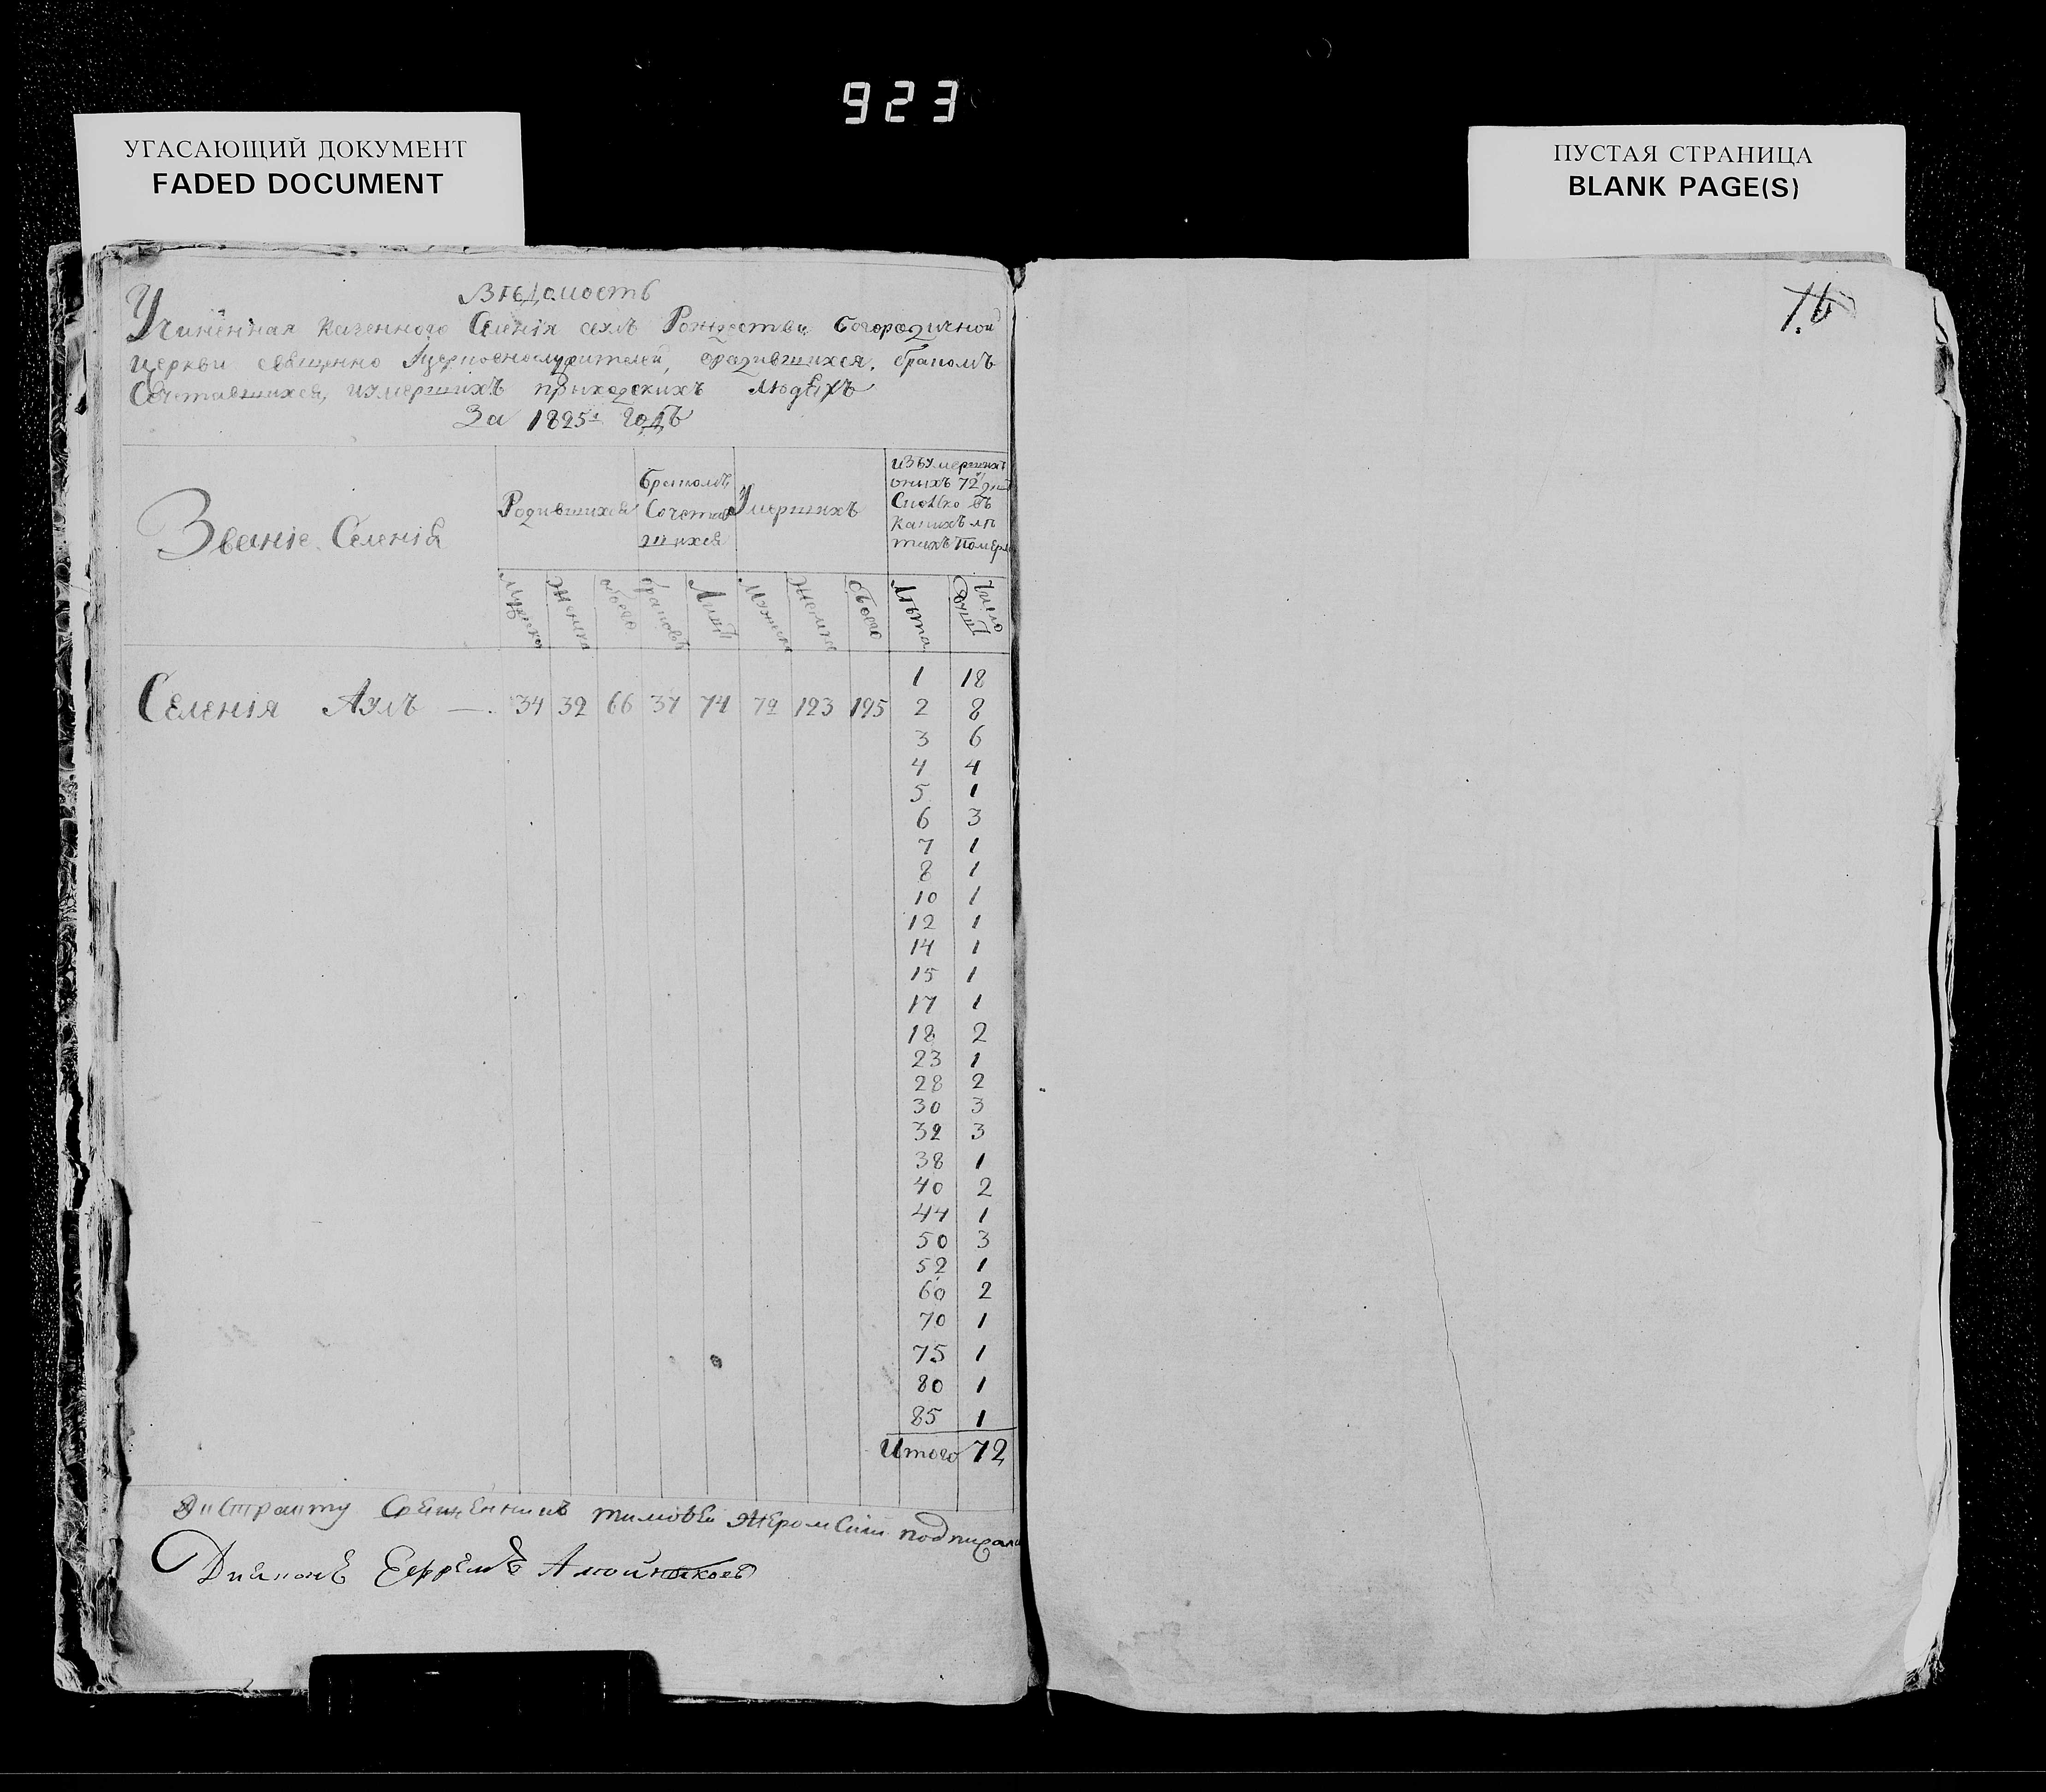 923
УГАСАЮЩИЙ ДОКУМЕНТ
FADED DOCUMENT
ПУСТАЯ СТРАНИЦА
BLANK PAGE(S)
Вѣдомость
Учиненная казенного Селенія Рождества богородичной
церкви священно церковнослужителей, бракомъ
Сочетавшихся, иумершихъ прыходскихъ людехъ
За 1825й годъ
Званіе Селенія
Родившихся
бракомъ
Сочетав
шихся
Умершихъ
изъумершихъ
оныхъ 72
Сколко въ
какихъ лѣ
тахъ Померло
Мужеска
Женска
обоего
браковъ
Лицъ
Мужеска
Женска
обоего
Лѣта
Число
Душъ
Селенія Аулъ — 34 32 66 37 74 72 123 195
1 18
2 8
3 6
4 4
5 1
6 3
7 1
8 1
10 1
12 1
14 1
15 1
17 1
18 2
23 1
28 2
30 3
32 3
38 1
40 2
44 1
50 3
52 1
60 2
70 1
75 1
80 1
85 1
Итого 72
Священникъ тимовей подписали
Диаконъ Ефремъ
16